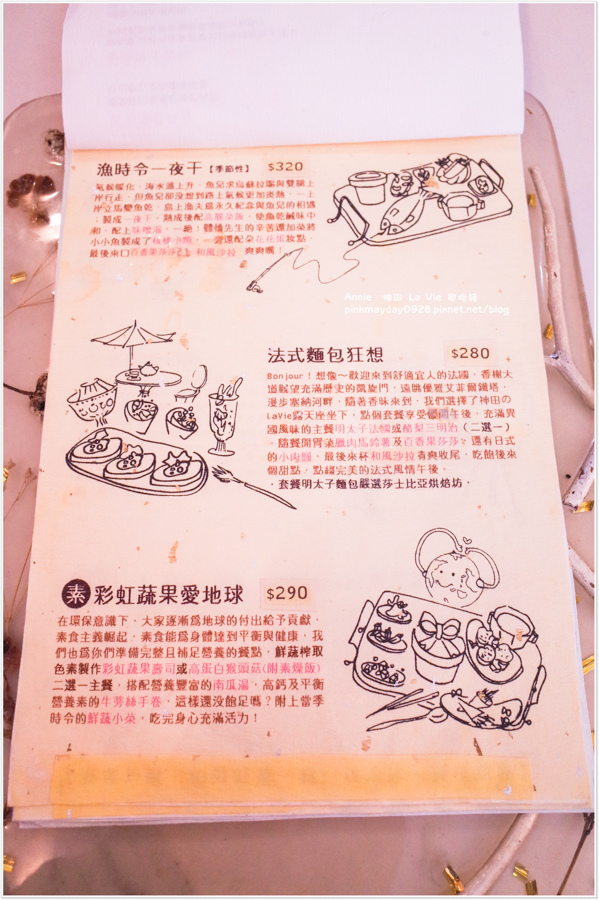 漁時令一夜干【季節性】 $320
氣候暖化，海水溫上升，魚兒求烏蘇拉賜與雙腿上
岸行走，但魚兒卻沒想到路上氣候更加炎熱，一上
岸立馬變魚乾，島上漁夫還永久紀念與魚兒的相遇
，製成一夜干，熟成後配
，使魚乾鹹味中
和，配上味噌湯，一絕！體恤先生的辛苦還加菜將
小小魚製成了
，一旁還配朵花花蛋妝點，
最後來口百香果莎莎
和風沙拉，爽爽嘴！
Annie 神田 La Vie 聖地菇
pinkmayday0928.pixnet.net/blog
法式麵包狂想 $280
Bonjour！想像～歡迎來到舒適宜人的法國，香榭大
道眺望充滿歷史的凱旋門，遠眺優雅艾菲爾鐵塔，
漫步塞納河畔，隨著香味來到，我們選擇了神田の
LaVie露天座坐下，點個套餐享受
午後，充滿異
國風味的主餐明太子法國或酪梨三明治（二選一）
，隨餐開胃菜臘肉馬鈴薯及百香果莎莎，還有日式
的小肉腸，最後來杯和風沙拉清爽收尾，吃飽後來
個甜點，點綴完美的法式風情午後。
．套餐明太子麵包嚴選莎士比亞烘焙坊．
素 彩虹蔬果愛地球 $290
在環保意識下，大家逐漸為地球的付出給予貢獻，
素食主義崛起，素食能為身體達到平衡與健康，我
們也為你們準備完整且補足營養的餐點，鮮蔬榨取
色素製作彩虹蔬果壽司或高蛋白猴頭菇(附素燥飯)
二選一主餐，搭配營養豐富的南瓜湯，高鈣及平衡
營養素的牛蒡絲手卷，這樣還沒飽足嗎？附上當季
時令的鮮蔬小菜，吃完身心充滿活力！